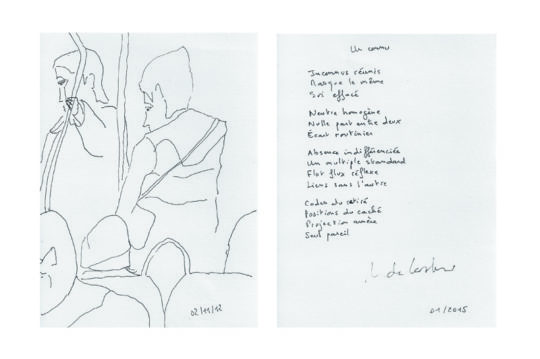 02/11/12
Inconnus réunis
Masque le même
Soi effacé
Neutre homogène
Nulle part entre deux
Écart routinier
Absence indifférenciée
Un multiple standard
Flot flux réflexe
Liens sans l'autre
Codes du retiré
Positions du caché
Projection amère
Sans pareil
01/2015